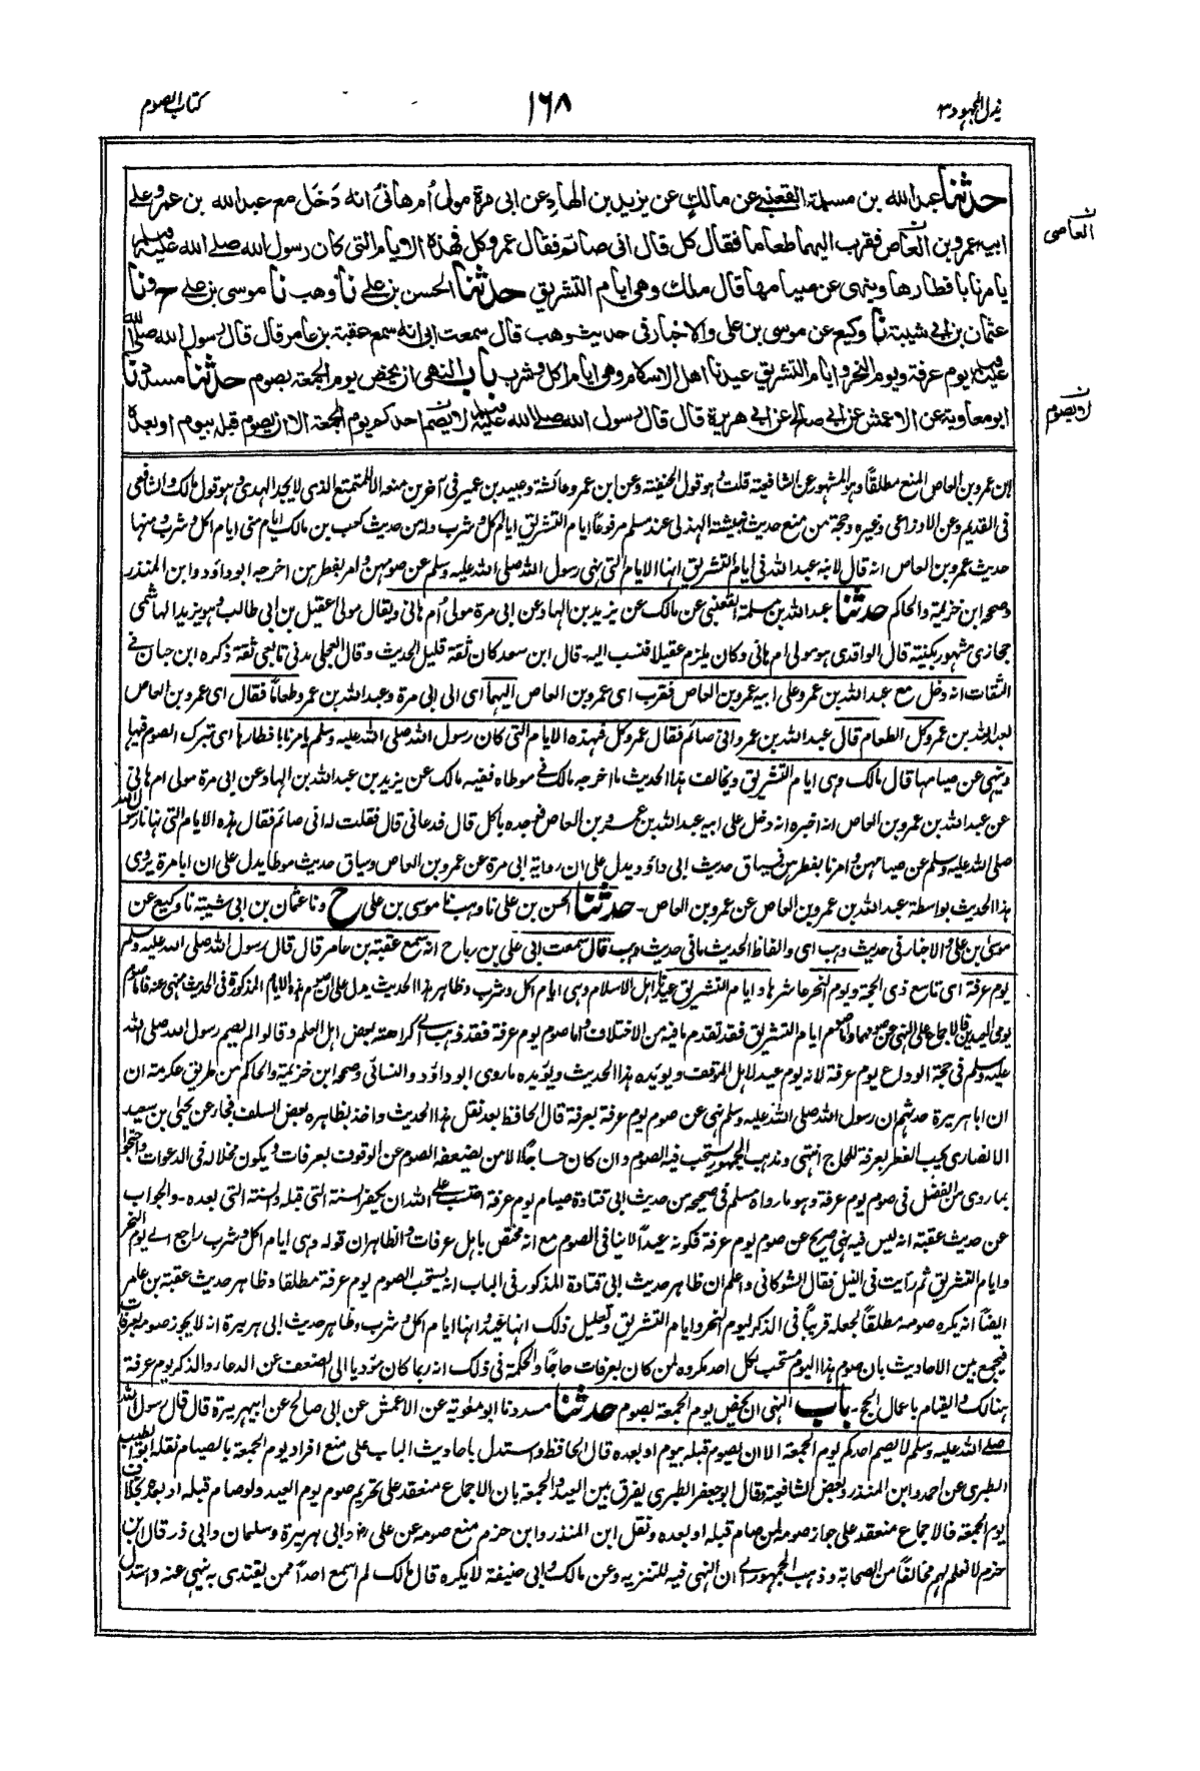 بذل المجهود ٣
١٦٨
كتاب الصوم
حدثنا عبد الله بن مسلمة القعنبي عن مالك عن يزيد بن الهاد عن ابى مرة مولى أم هانئ انه دَخَل مع عبد الله بن عمرو على
العاصى
ابيه عمرو بن العاص فقرب اليهما طعاما فقال كل قال انى صائم فقال عمرو كل فهذه الايام التى كان رسول الله صلى الله عليه وسلم
يامرنا بافطارها وينهى عن صيامها قال مالك وهى ايام التشريق حدثنا الحسن بن على نا وهب نا موسى بن على ح ونا
عثمان بن ابى شيبة نا وكيع عن موسى بن على والاخبار فى حديث وهب قال سمعت ابى انه سمع عقبة بن عامر قال قال رسول الله صلى الله
عليه وسلم يوم عرفة ويوم النحر وايام التشريق عيدنا اهل الاسلام وهى ايام اكل وشرب باب النهى ان يخص يوم الجمعة بصوم حدثنا مسدد نا
لا يصوم
ابو معاوية عن الاعمش عن ابى صالح عن ابى هريرة قال قال رسول الله صلى الله عليه وسلم لا يصم احدكم يوم الجمعة الا ان يصوم قبله بيوم او بعده
ابن عمرو بن العاص المنع مطلقاً وهو المشهور عن الشافعية قلت وهو قول الحنفية وعن ابن عمر وعائشة وعبيد بن عمير فى آخرين منعه الا للمتمتع الذى لا يجد الهدى وهو قول مالك والشافعى
فى القديم وعن الاوزاعى وغيره وحجة من منع حديث نبيشة الهذلى عند مسلم مرفوعاً ايام التشريق ايام اكل وشرب وله من حديث كعب بن مالك ايام منى ايام اكل وشرب ومنها
حديث عمرو بن العاص انه قال لابنه عبد الله فى ايام التشريق انها الايام التى نهى رسول الله صلى الله عليه وسلم عن صومهن وامر بفطرهن اخرجه ابو داؤد وابن المنذر
وصححه ابن خزيمة والحاكم حدثنا عبد الله بن مسلمة القعنبى عن مالك عن يزيد بن الهاد عن ابى مرة مولى أم هانى ويقال مولى عقيل بن ابى طالب وهو يزيد الهاشمى
حجازى مشهور بكنيته قال الواقدى هو مولى ام هانى وكان يلزم عقيلا فنسب اليه۔ قال ابن سعد كان ثقة قليل الحديث وقال العجلى مدنى تابعى ثقة ذكره ابن حبان فى
الثقات انه دخل مع عبد الله بن عمرو على ابيه عمرو بن العاص فقرب اى عمرو بن العاص اليهما اى الى ابى مرة وعبد الله بن عمرو طعاماً فقال اى عمرو بن العاص
لعبد الله بن عمرو كل الطعام قال عبد الله بن عمرو انى صائم فقال عمرو كل فهذه الايام التى كان رسول الله صلى الله عليه وسلم يامرنا بافطارها اى بترك الصوم فيها
وينهى عن صيامها قال مالك وهى ايام التشريق ويخالف هذا الحديث ما اخرجه مالك فى موطاه ففيه مالك عن يزيد بن عبد الله بن الهاد عن ابى مرة مولى ام هانى
عن عبد الله بن عمرو بن العاص انه اخبره انه دخل على ابيه عبد الله بن عمرو بن العاص فوجده ياكل قال فدعانى قال فقلت له انى صائم فقال هذه الايام التى نهانا رسول الله
صلى الله عليه وسلم عن صيامهن وامرنا بفطرهن فسياق حديث ابى داؤد يدل على ان رواية ابى مرة عن عمرو بن العاص وسياق حديث موطا يدل على ان ابا مرة يروى
هذا الحديث بواسطة عبد الله بن عمرو بن العاص عن عمرو بن العاص۔ حدثنا الحسن بن على نا وهب نا موسى بن على ح ونا عثمان بن ابى شيبة نا وكيع عن
موسى بن على والاخبار فى حديث وهب اى والفاظ الحديث ما فى حديث وهب قال سمعت ابى على بن رباح انه سمع عقبة بن عامر قال قال رسول الله صلى الله عليه وسلم
يوم عرفة اى تاسع ذى الحجة ويوم النحر عاشرها وايام التشريق عيدنا اهل الاسلام وهى ايام اكل وشرب وظاهر هذا الحديث يدل على ان صوم هذه الايام المذكورة فى الحديث منهى عنه فاما صوم
يومى العيدين فالاجماع على النهى عن صومهما واما صوم ايام التشريق فقد تقدم ما فيه من الاختلاف واما صوم يوم عرفة فقد ذهب الى كراهته بعض اهل العلم وقالوا لم يصم رسول الله صلى الله
عليه وسلم فى حجة الوداع يوم عرفة لانه يوم عيد لاهل الموقف ويؤيده هذا الحديث ويؤيده ما روى ابو داؤد والنسائى وصححه ابن خزيمة والحاكم من طريق عكرمة ان
ان ابا هريرة حدثهم ان رسول الله صلى الله عليه وسلم نهى عن صوم يوم عرفة بعرفة قال الحافظ بعد نقل هذا الحديث واخذ بظاهره بعض السلف فجاء عن يحيى بن سعيد
الانصارى يجب الفطر بعرفة للحاج انتهى وذهب الجمهور يستحب فيه الصوم وان كان حاجاً الا من يضعفه الصوم عن الوقوف بعرفات ويكون مخلا له فى الدعوات واحتجوا
بما روى من الفضل فى صوم يوم عرفة وهو ما رواه مسلم فى صحيحه من حديث ابى قتادة صيام يوم عرفة احتسب على الله ان يكفر السنة التى قبله والسنة التى بعده۔ والجواب
عن حديث عقبة انه ليس فيه نهى صريح عن صوم يوم عرفة فكونه عيداً لا ينافى الصوم مع انه مختص باهل عرفات والظاهر ان قوله وهى ايام اكل وشرب راجع الى يوم النحر
وايام التشريق ثم رأيت فى النيل فقال الشوكانى واعلم ان ظاهر حديث ابى قتادة المذكور فى الباب انه يستحب الصوم يوم عرفة مطلقا وظاهر حديث عقبة بن عامر
ايضاً انه يكره صومه مطلقاً لجعله قريباً فى الذكر ليوم النحر وايام التشريق وتعليل ذلك انها عيد وانها ايام اكل وشرب وظاهر حديث ابى هريرة انه لا يجوز صومه بعرفات
فيجمع بين الاحاديث بان صوم هذا اليوم مستحب لكل احد مكروه لمن كان بعرفات حاجاً والحكمة فى ذلك انه ربما كان مؤديا الى الضعف عن الدعاء والذكر يوم عرفة
هنالك والقيام باعمال الحج۔ باب النهى ان يخص يوم الجمعة بصوم حدثنا مسدد نا ابو معوية عن الاعمش عن ابى صالح عن ابى هريرة قال قال رسول الله
صلى الله عليه وسلم لا يصم احدكم يوم الجمعة الا ان يصوم قبله بيوم او بعده قال الحافظ واستدل باحاديث الباب على منع افراد يوم الجمعة بالصيام نقله ابو الطيب
الطبرى عن احمد وابن المنذر وبعض الشافعية وقال ابو جعفر الطبرى يفرق بين العيد والجمعة بان الاجماع منعقد على تحريم صوم يوم العيد ولو صام قبله او بعده بخلاف
يوم الجمعة فالاجماع منعقد على جواز صومه لمن صام قبله او بعده ونقل ابن المنذر وابن حزم منع صومه عن على رض وابى هريرة وسلمان وابى ذر قال ابن
حزم لا نعلم لهم مخالفاً من الصحابة وذهب الجمهور الى ان النهى فيه للتنزيه وعن مالك وابى حنيفة لا يكره قال مالك لم اسمع احداً ممن يقتدى به ينهى عنه واستدل